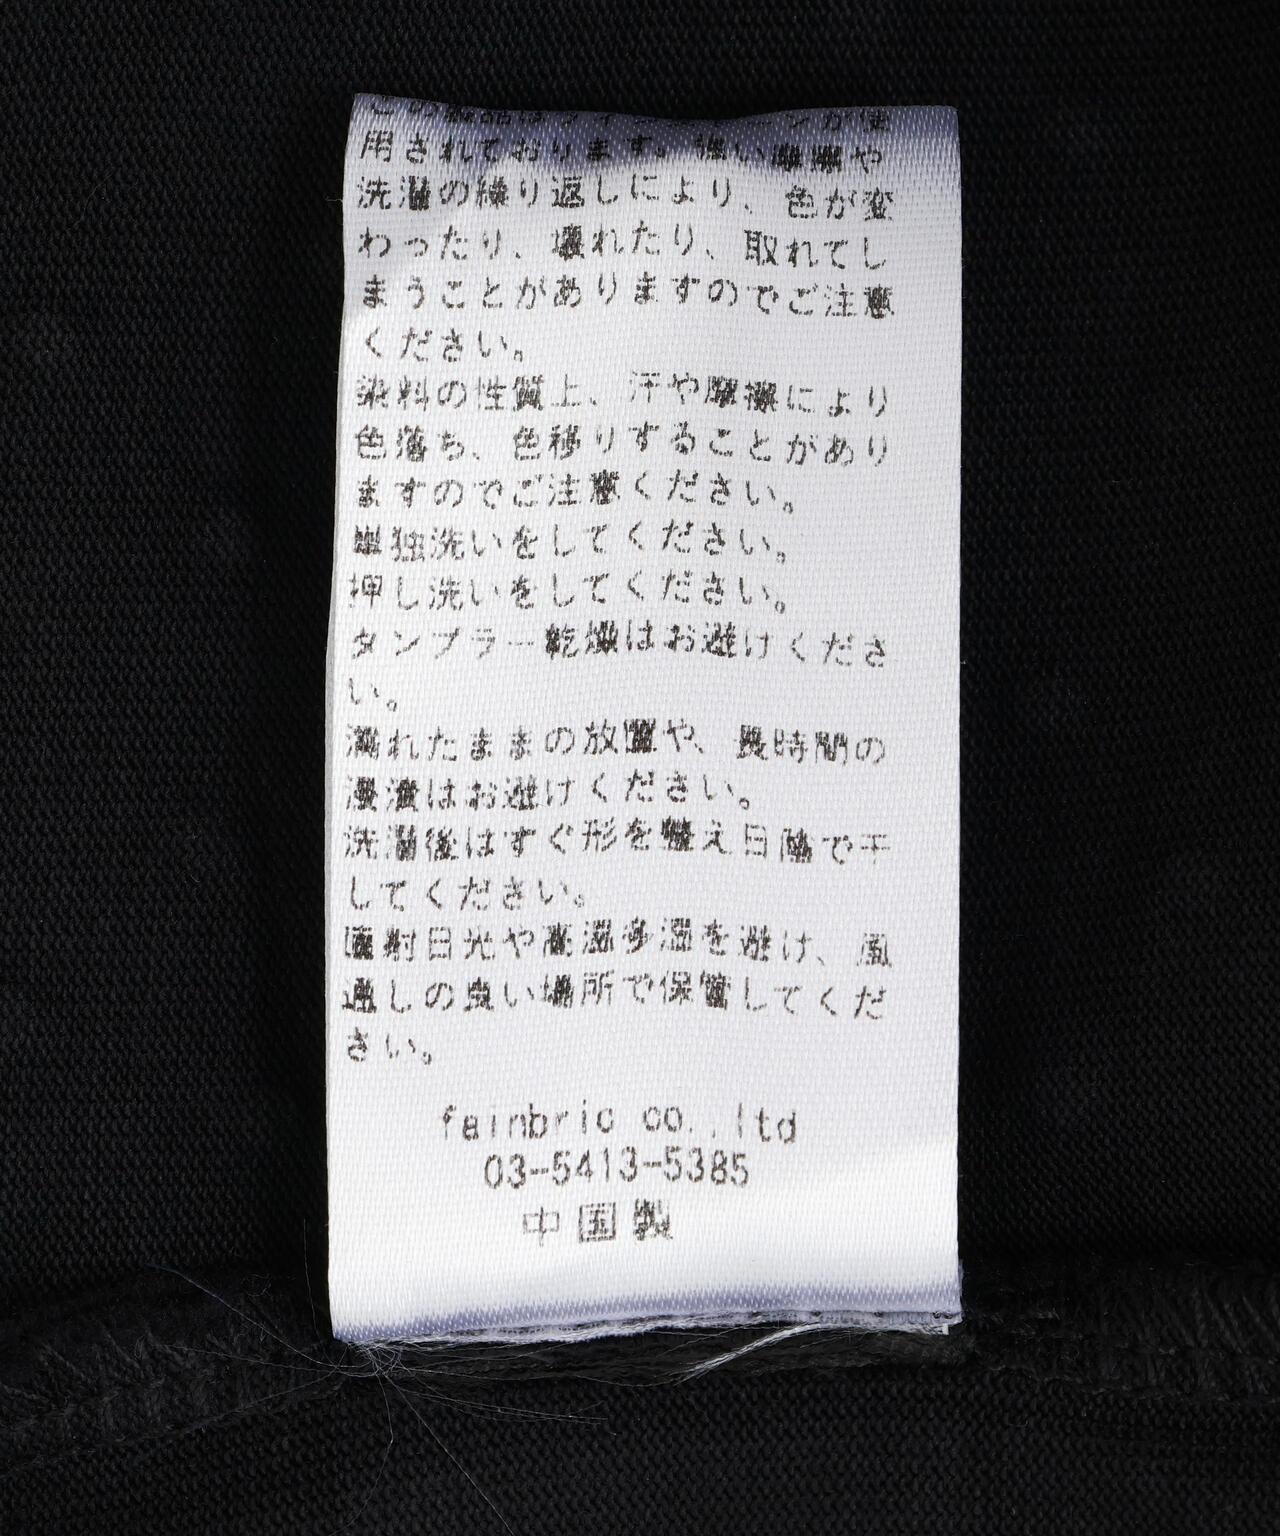 用されております。強い摩擦や
洗濯の繰り返しにより、色が変
わったり、壊れたり、取れてし
まうことがありますのでご注意
ください。
染料の性質上、汗や摩擦により
色落ち、色移りすることがあり
ますのでご注意ください。
単独洗いをしてください。
押し洗いをしてください。
タンブラー乾燥はお避けくださ
い。
濡れたままの放置や、長時間の
浸漬はお避けください。
洗濯後はすぐ形を整え日陰で干
してください。
直射日光や高温多湿を避け、風
通しの良い場所で保管してくだ
さい。
fainbric co.,ltd
03-5413-5385
中国製